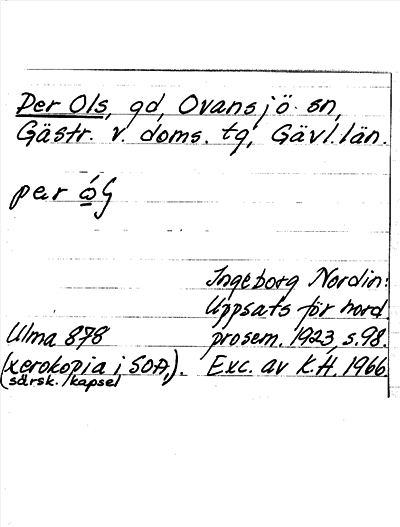 Per Ols, gd, Ovansjö sn,
Gästr. v. doms. tg, Gävl. län.
per ώɕ
Ingeborg Nordin:
Uppsats för nord.
Ulma 878 prosem. 1923, s. 98.
(xerokopia i SOA,). Exc. av K.H. 1966.
särsk. kapsel